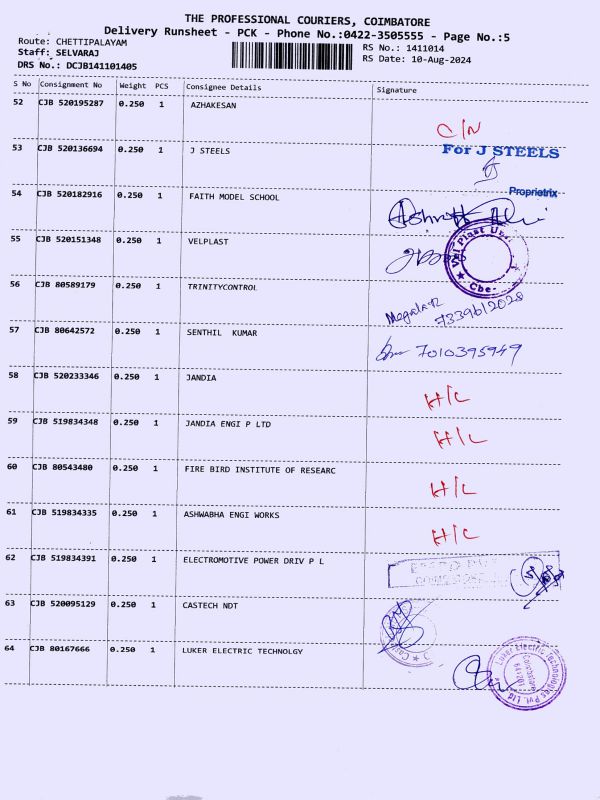 THE PROFESSIONAL COURIERS, COIMBATORE
Delivery Runsheet - PCK - Phone No.:0422-3505555 - Page No.:5
Route: CHETTIPALAYAM
Staff: SELVARAJ
DRS No.: DCJB141101405
RS No.: 1411014
RS Date: 10-Aug-2024
S No Consignment No Weight PCS Consignee Details Signature
52 CJB 520195287 0.250 1 AZHAKESAN
C/N
53 CJB 520136694 0.250 1 J STEELS
For J STEELS
Proprietrix
54 CJB 520182916 0.250 1 FAITH MODEL SCHOOL
55 CJB 520151348 0.250 1 VELPLAST
Vel Plast
Cbe-
56 CJB 80589179 0.250 1 TRINITYCONTROL
7339612028
57 CJB 80642572 0.250 1 SENTHIL KUMAR
7010395949
58 CJB 520233346 0.250 1 JANDIA
H/C
59 CJB 519834348 0.250 1 JANDIA ENGI P LTD
H/C
60 CJB 80543480 0.250 1 FIRE BIRD INSTITUTE OF RESEARC
H/C
61 CJB 519834335 0.250 1 ASHWABHA ENGI WORKS
H/C
62 CJB 519834391 0.250 1 ELECTROMOTIVE POWER DRIV P L
63 CJB 520095129 0.250 1 CASTECH NDT
64 CJB 80167666 0.250 1 LUKER ELECTRIC TECHNOLGY
Luker Electric Technologies Pvt. Ltd
Coimbatore